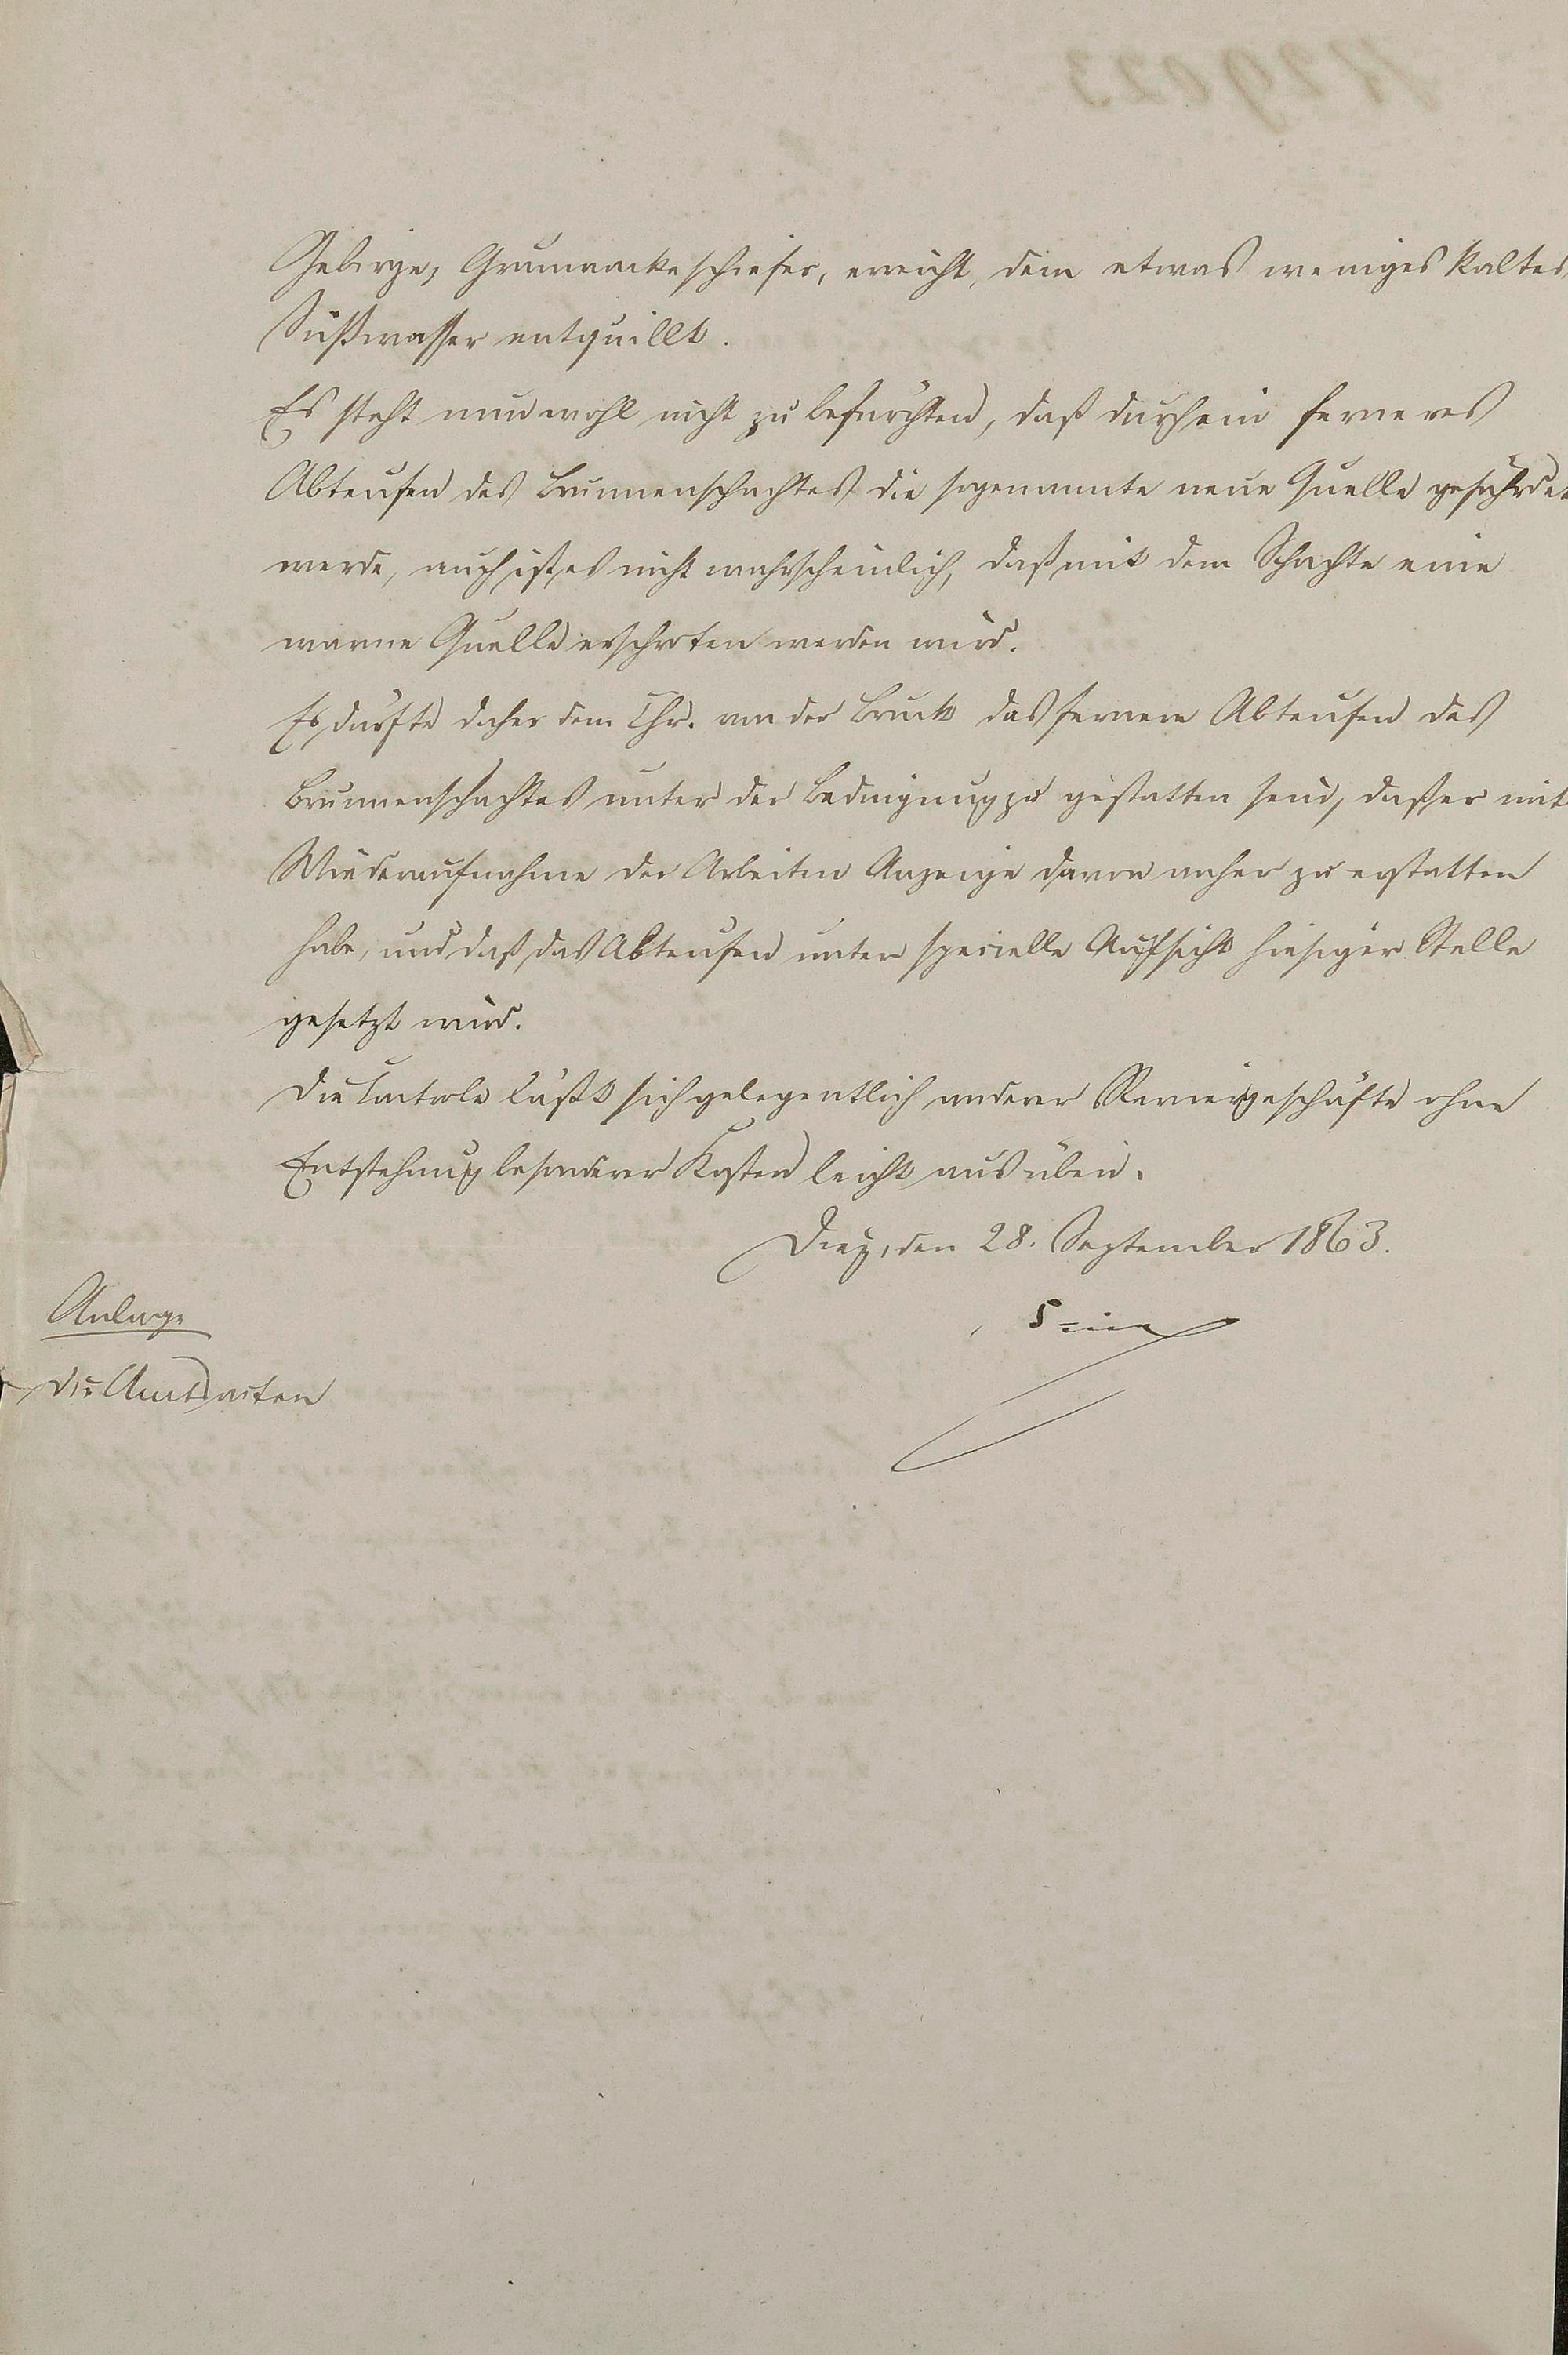 Gebirge, Grauwackeschiefer, erreicht, dem etwas weniges kaltes
Süßwasser entquillt.
Es steht nun wohl nicht zu befürchten, daß durch ein ferneres
Abteufen des Brunnenschachtes die sogenannte neue Quelle gefährdet
werde, auch ist es nicht wahrscheinlich, daß mit dem Schachte eine
warme Quelle erschroten werden wird.
Es dürfte daher dem Chr. von der Bruck das fernere Abteufen des
Brunnenschachtes unter der Bedingung zu gestatten sein, daß er mit
Wiederaufnahme der Arbeiten Anzeige davon anher zu erstatten
habe, und daß das Abteufen unter specielle Aufsicht hiesiger Stelle
gesetzt wird.
Die Controle läßt sich gelegentlich anderer Reviergeschäfte ohne
Entstehung besonderer Kosten leicht ausüben.
Diez, den 28. September 1863.
Anlage
die Amtsacten